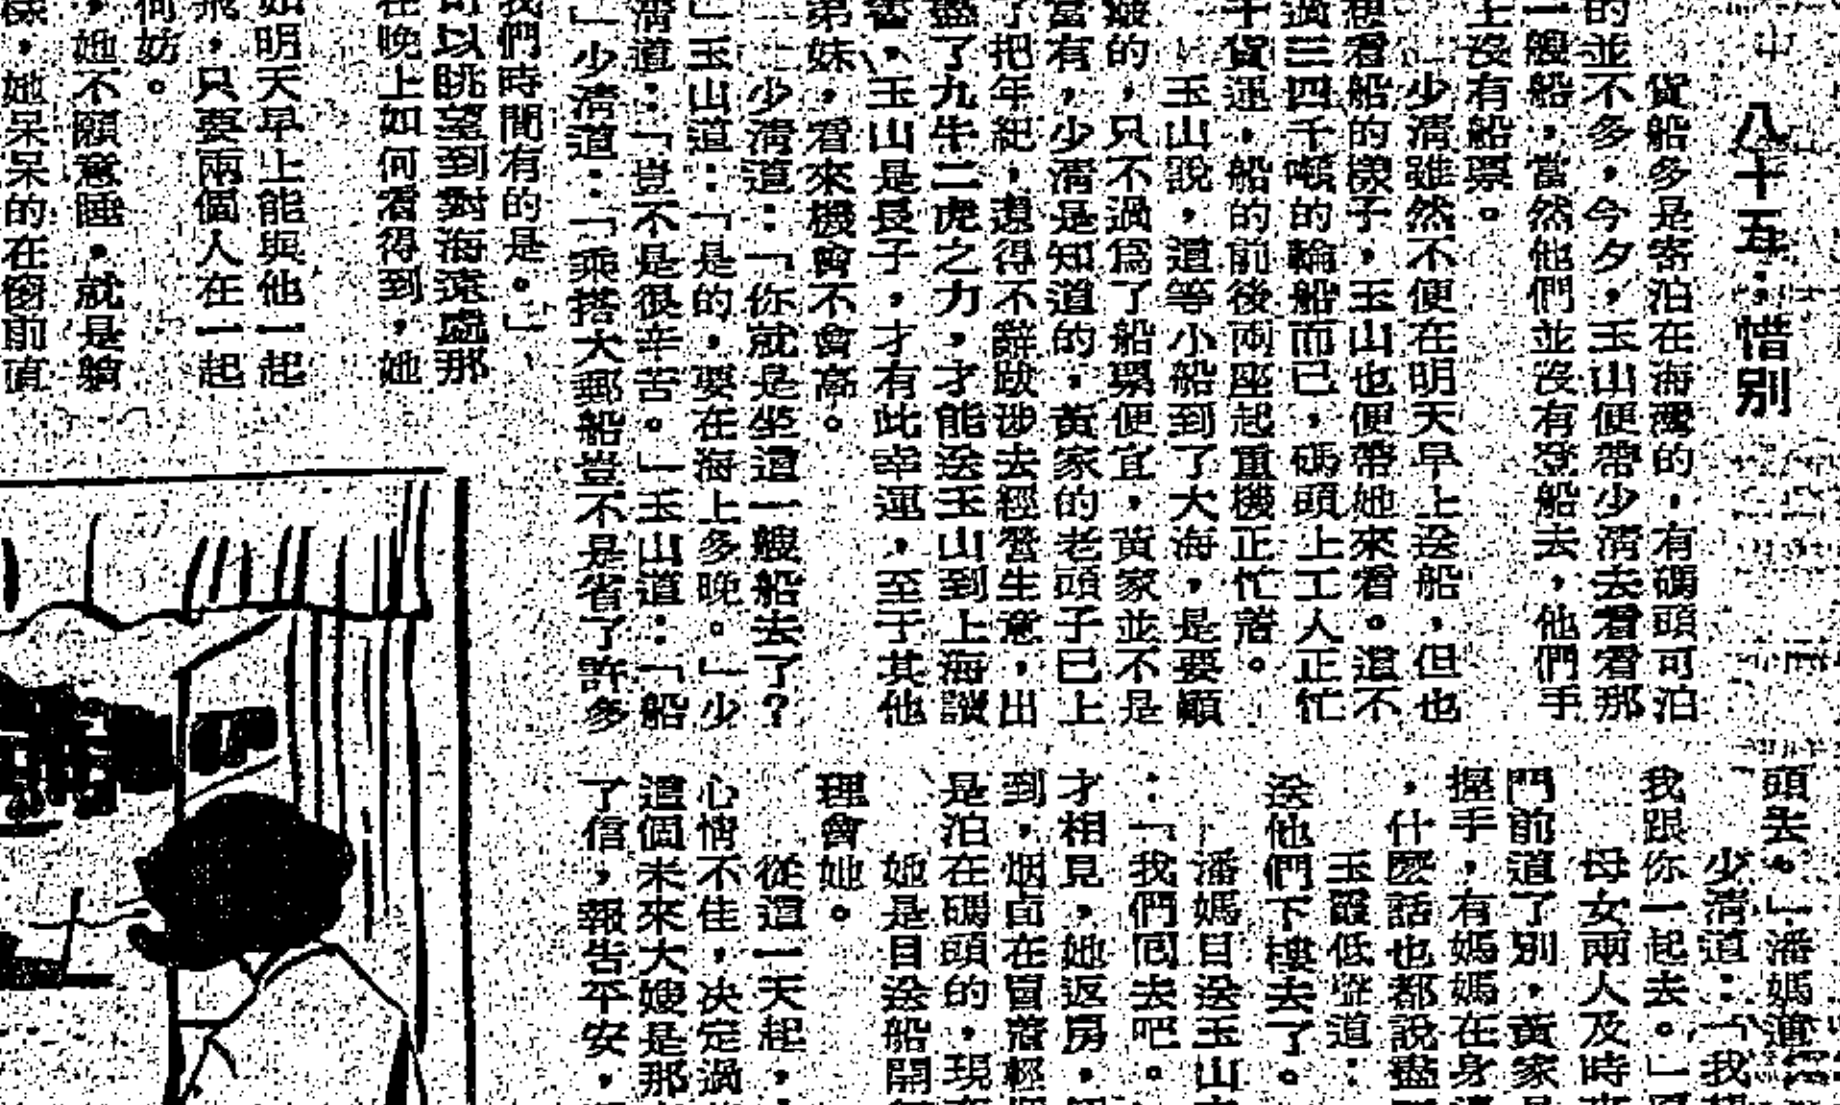 八十五：惜別
貨船多是寄泊在海灣的，有碼頭可泊
的並不多，今夕，玉山便帶少清去看看那
一艘船，當然他們並沒有登船去，他們手
上沒有船票。
少清雖然不便在明天早上送船，但也
想看船的樣子，玉山也便帶她來看。還不
過三四千噸的輪船而已，碼頭上工人正忙
于貨運，船的前後兩座起重機正忙著。
玉山說，這等小船到了大海，是要顛
簸的，只不過爲了船票便宜，黃家並不是
富有，少清是知道的，黃家的老頭子已上
了把年紀，還得不辭跋涉去經營生意，出
盡了九牛二虎之力，才能送玉山到上海讀
書、玉山是長子，才有此幸運，至于其他
弟妹，看來機會不會高。
少清道：「你就是坐這一艘船去了？
」玉山道：「是的，要在海上多晚。」少
清道：「豈不是很辛苦。」玉山道：「船
」少清道：「乘搭大郵船豈不是省了許多
我們時間有的是。」
可以眺望到對海遠處那
在晚上如何看得到，她
如明天早上能與他一起
飛，只要兩個人在一起
何妨。
，她不願意睡，就是躺
樣，她呆呆的在窗前直
頭去。」潘媽道
少清道：「我
我跟你一起去。」
母女兩人及時
門前道了別，黃家
握手，有媽媽在身
，什麼話也都說盡
玉霞低聲道：
送他們下樓去了。
潘媽目送玉山
：「我們回去吧。
才相見，她返房，
到，烟囪在冒著輕
是泊在碼頭的，現
她是目送船開
理會她。
從這一天起，
心情不佳，决定過
這個未來大嫂是那
了信，報告平安，